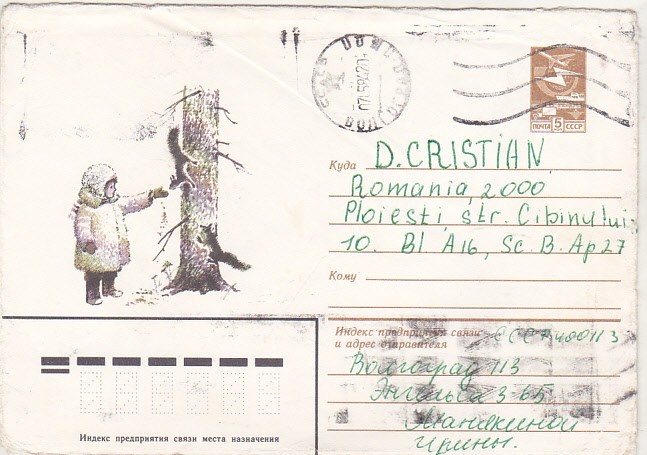 ПОЧТА 5К СССР
Куда D. CRISTIAN
Romania, 2000
Ploiesti, str. Cibinului
10. Bl. A16, Sc. B. Ap 27
Кому
Индекс предприятия связи
и адрес отправителя
СССР 400113
Волгоград 113
Энгельса 3-65
Ирины.
Индекс предприятия связи места назначения